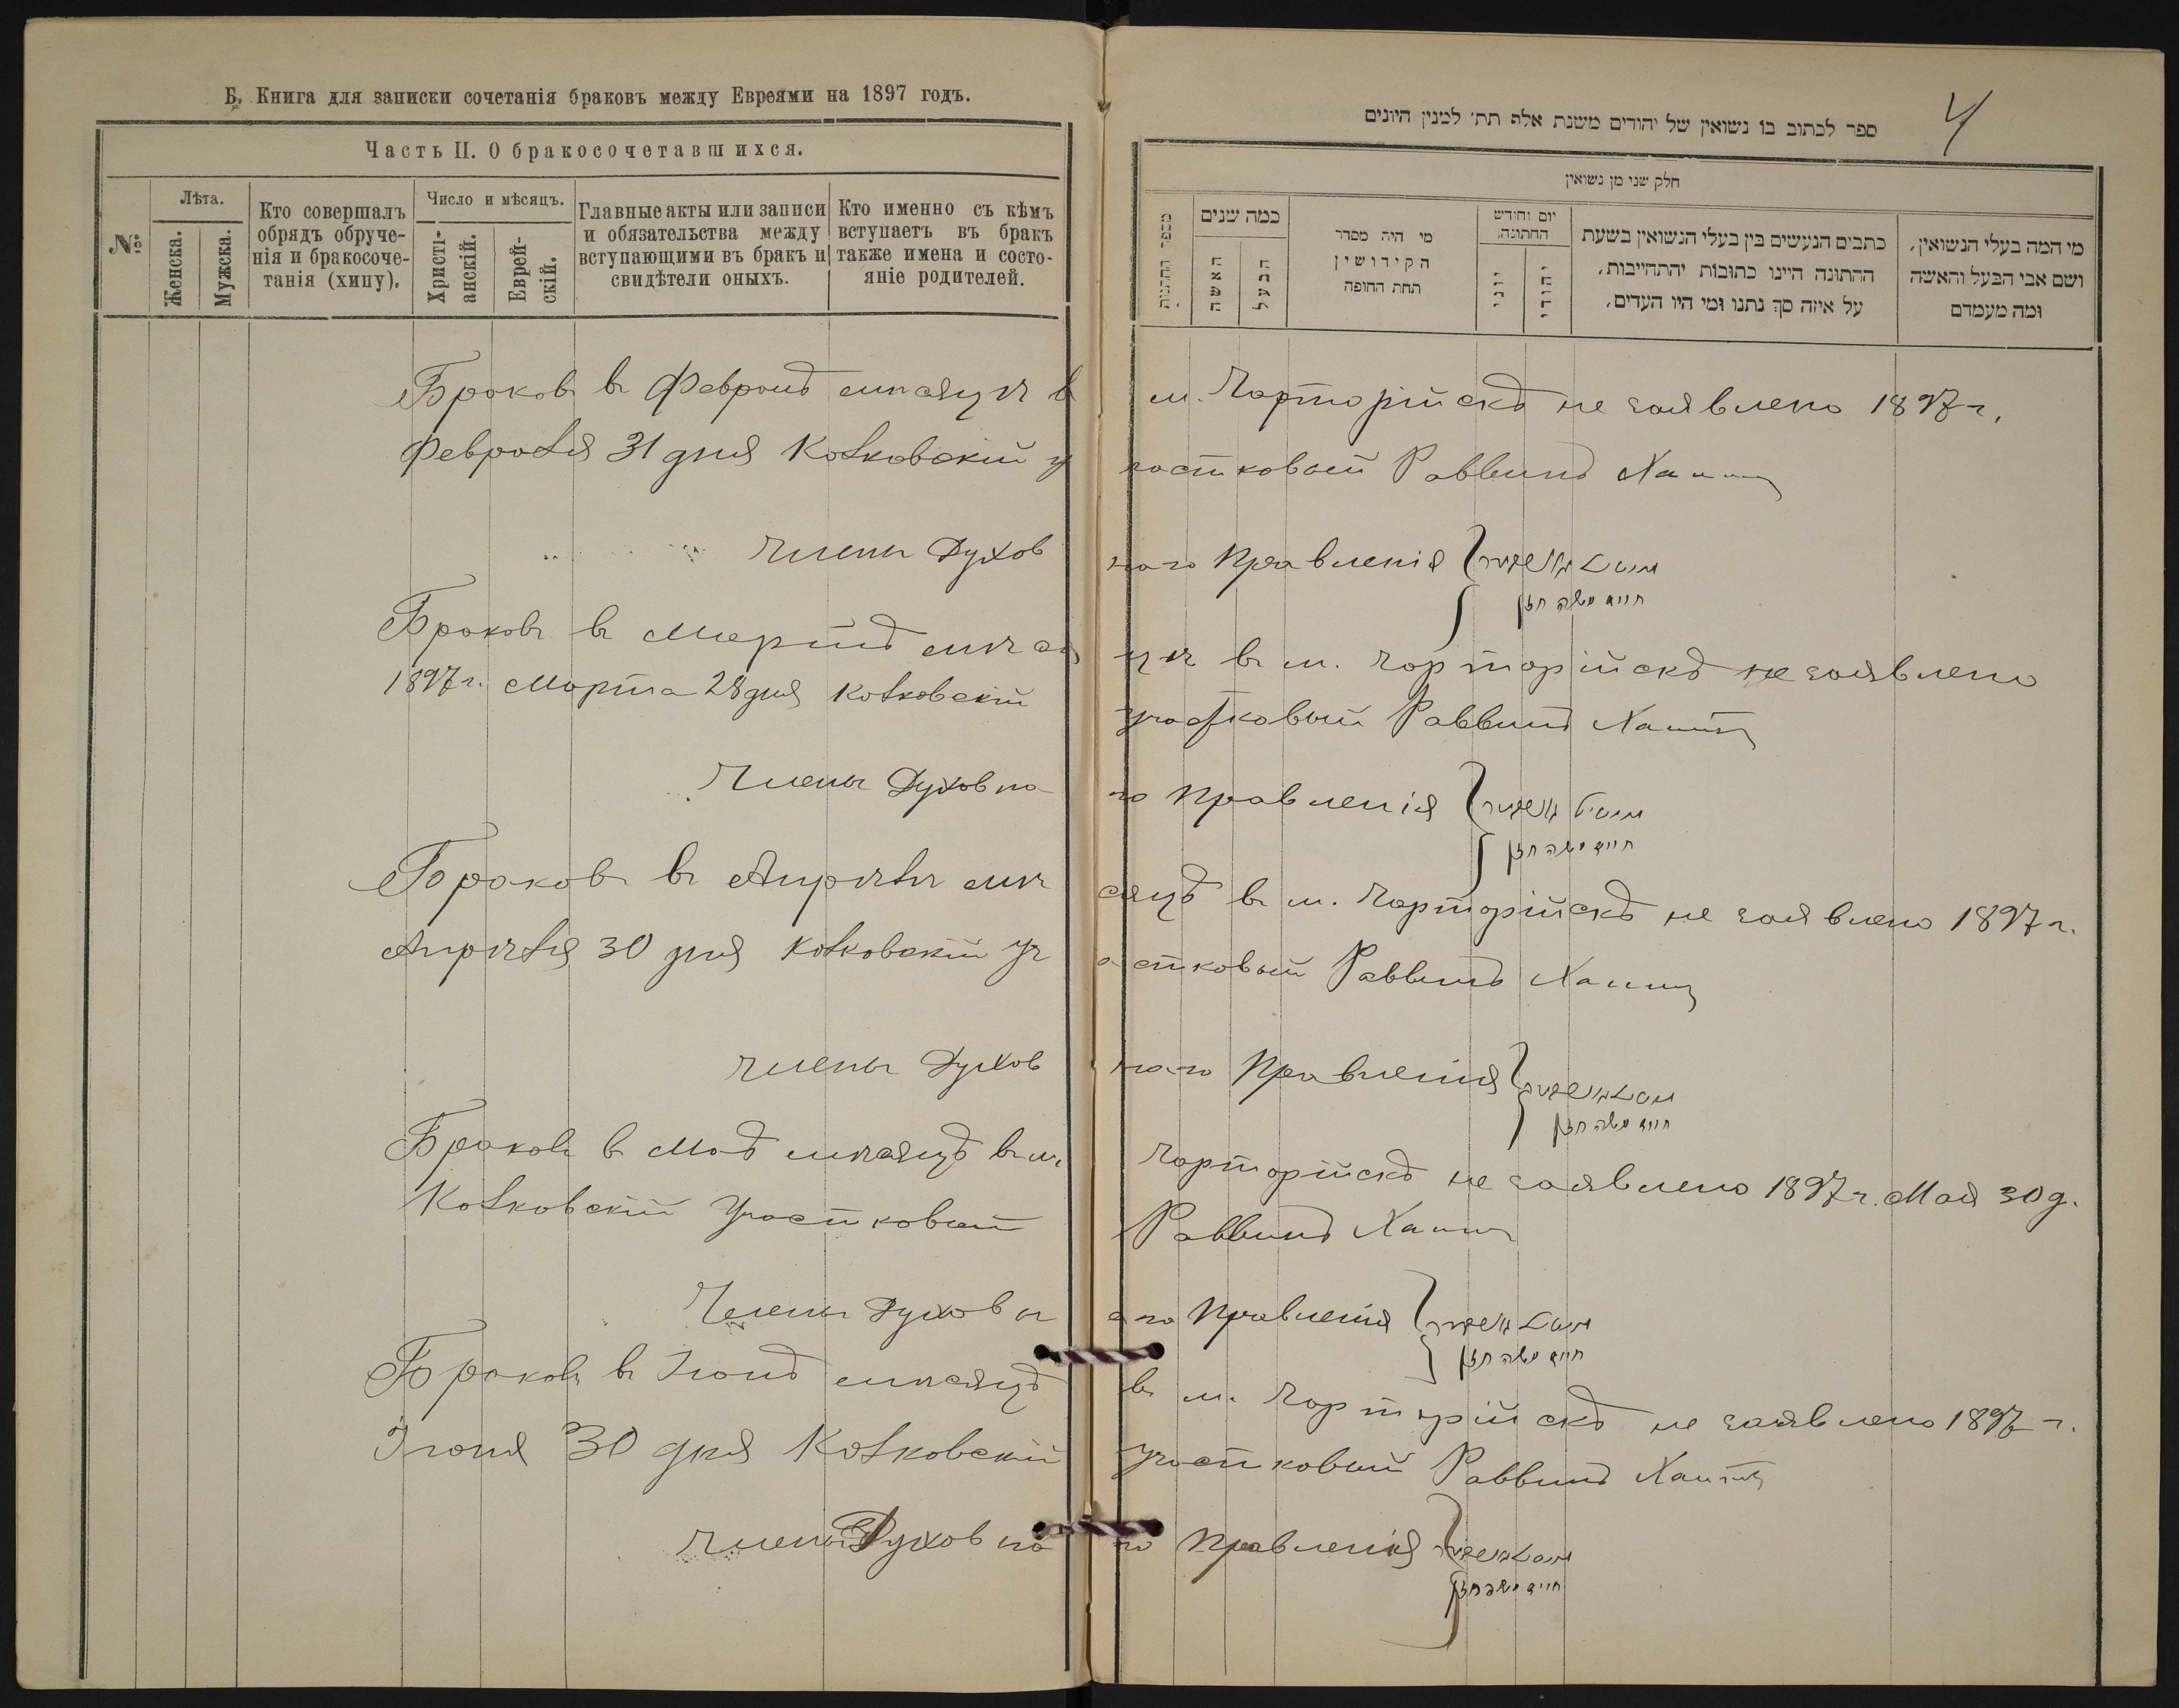 Б, Книга для записки сочетанія браковъ между Евреями на 1897 годъ.
Часть II. О бракосочетавшихся.
№
Лѣта.
Женска.
Мужска.
Кто совершалъ
обрядъ обруче-
нія и бракосоче-
танія (хипу).
Число и мѣсяцъ.
Христі-
анскій.
Еврей-
скій.
Главные акты или записи
и обязательства между
вступающими въ бракъ и
свидѣтели оныхъ.
Кто именно съ кѣмъ
вступаетъ въ бракъ
также имена и состо-
яніе родителей.
4
ספר לכתוב בו נשואין של יהודים משנת אלפ תת׳ למנין היונים
חלק שני מן נשואין
מספר החתנות
כמה שנים
האשה
הבעל
מי היה מסדר
הקידושין
תחת החופה
יום וחודש
החתונה,
יוני
יהודי
כתבים הנעשים בין בעלי הנשואין בשעת
ההתונה היינו כתובות יהתחייבות,
על איזה סך נתנו ומי היו העדים,
מי המה בעלי הנשואין,
ושם אבי הבעל והאשה
ומה מעמדם
Браковъ въ Февралѣ мѣсяцѣ в м. Чарторійскѣ не заявлено 1897 г.
Февраля 31 дня Колковскій участковый Раввинъ
Члены Духовнаго Правленія
חיים משה חזן
Браковъ въ Мартѣ мѣсяцѣ въ м. Чарторійскѣ не заявлено
1897 г. Марта 28 дня Колковскій участковый Раввинъ
Члены Духовнаго Правленія
חיים משה חזן
Браковъ въ Апрѣлѣ мѣсяцѣ въ м. Чарторійскѣ не заявлено 1897 г.
Апрѣля 30 дня Колковскій участковый Раввинъ
Члены Духовнаго Правленія
חיים משה חזן
Браковъ въ Маѣ мѣсяцѣ въ м. Чарторійскѣ не заявлено 1897 г. Мая 30 д.
Колковскій Участковый Раввинъ
Члены Духовнаго Правленія
חיים משה חזן
Браковъ въ Іюнѣ мѣсяцѣ въ м. Чарторійскѣ не заявлено 1897 г.
Іюня 30 дня Колковскій участковый Раввинъ
Члены Духовнаго Правленія
חיים משה חזן